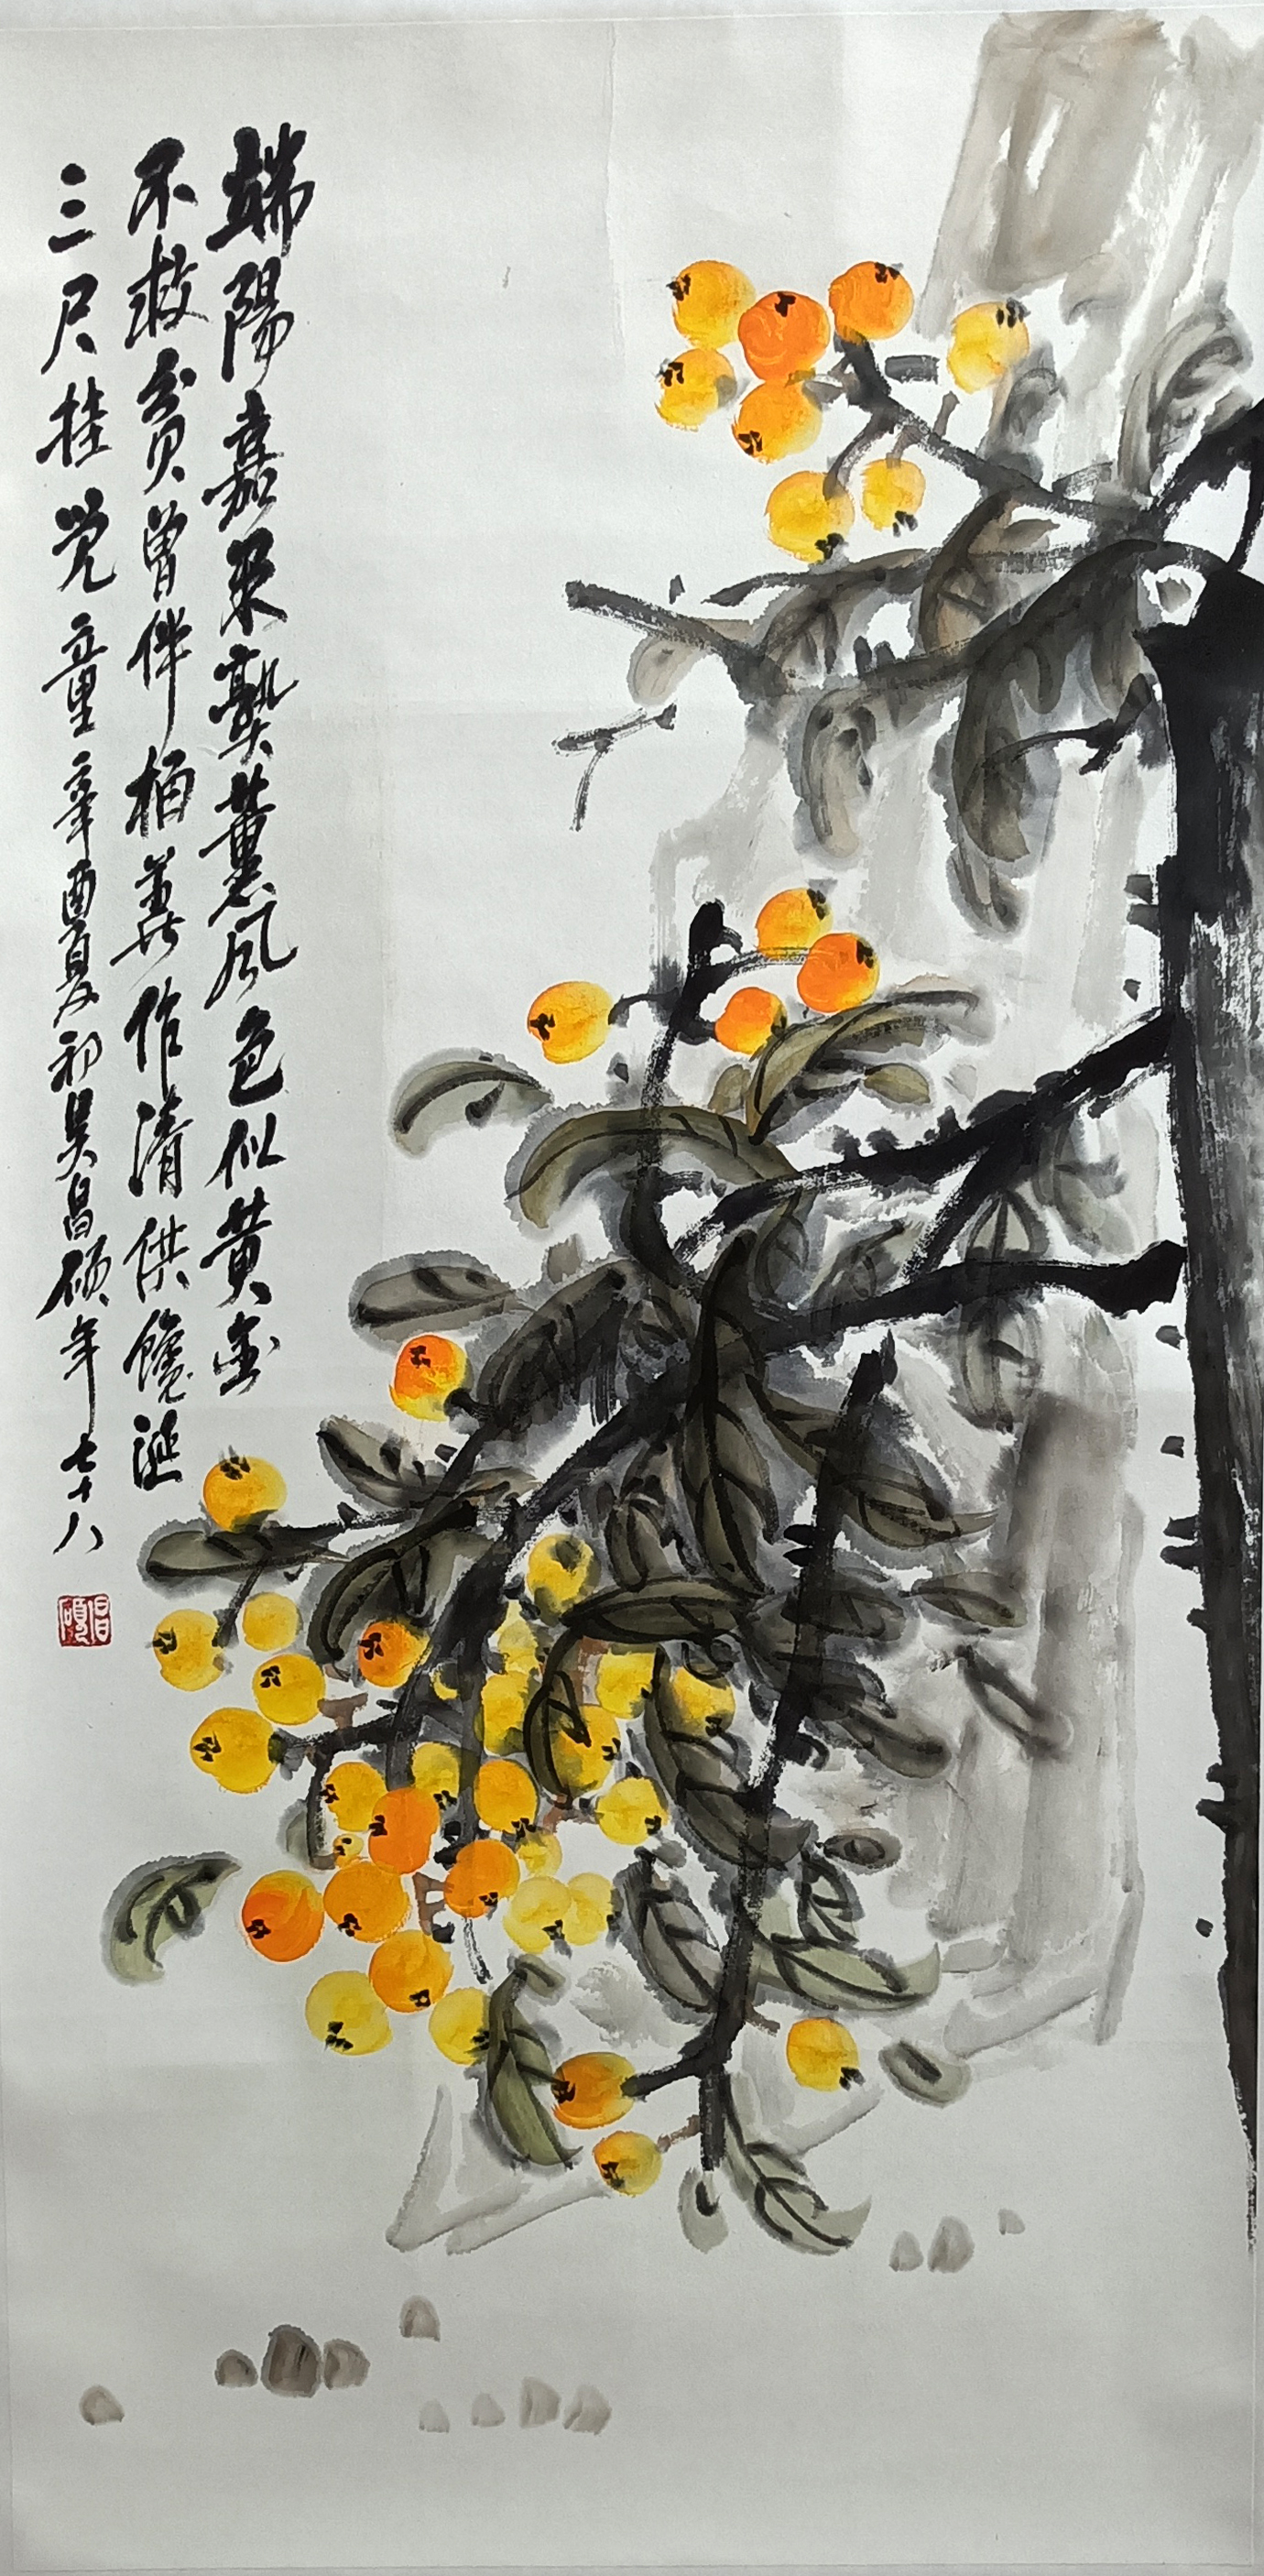 端陽嘉果熟薰風色似黄金
不救貧曾伴菖蒲作清供饞涎
三尺挂兒童辛酉夏初吴昌碩年七十八
昌碩